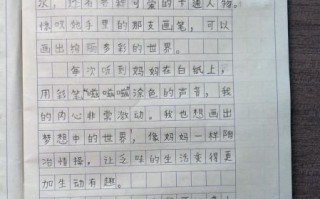 水，还有各种可爱的卡通人物。
像吹她手里的那支画笔，可以
画出绚丽多彩的世界。
每次听到妈妈在白纸上，
用彩笔嗞嗞涂色的声音，我
的内心非常激动。我也想画出
梦想中的世界，像妈妈一样陶
冶情操，让乏味的生活变得更
加生动有趣。